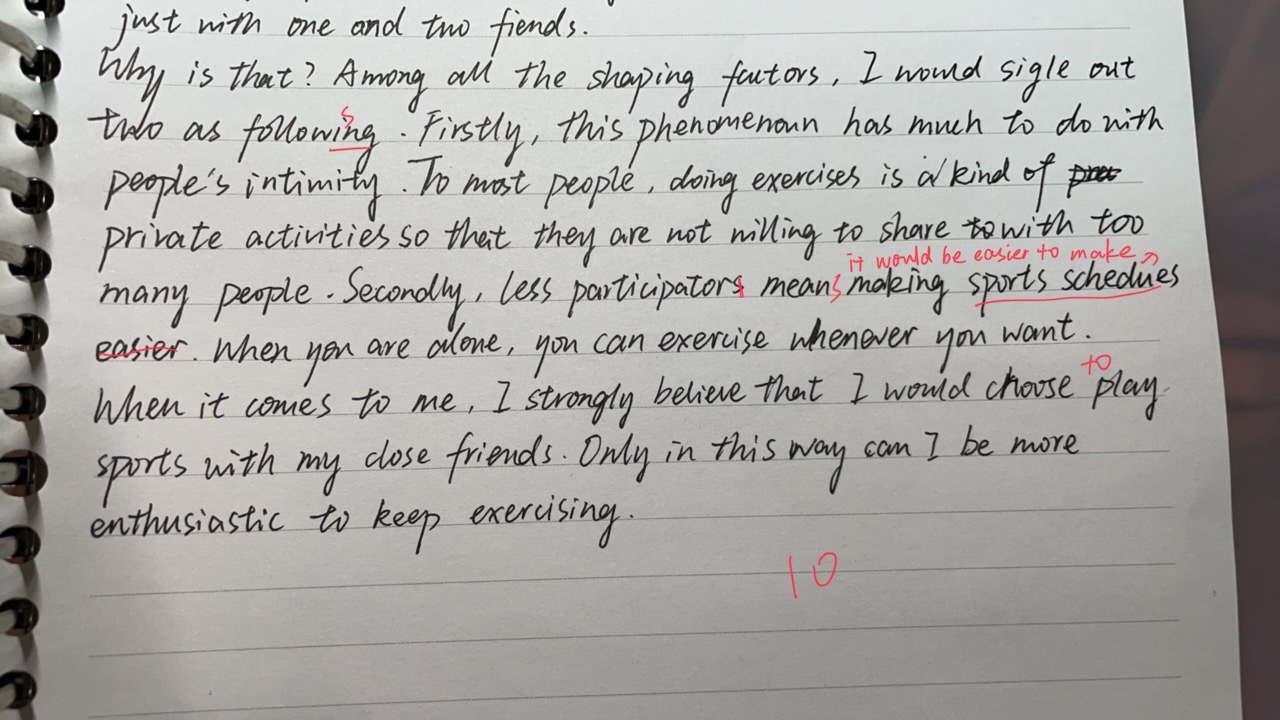 just with one and two fiends.
Why is that? Among all the shaping factors, I would sigle out
s
two as following. Firstly, this phenomenoun has much to do with
people's intimity. To most people, doing exercises is a kind of
private activities so that they are not willing to share to with too
it would be easier to make
many people. Secondly, less participators means making sports schedues
easier. When you are alone, you can exercise whenever you want.
to
When it comes to me, I strongly believe that I would choose play
sports with my close friends. Only in this way can I be more
enthusiastic to keep exercising.
10